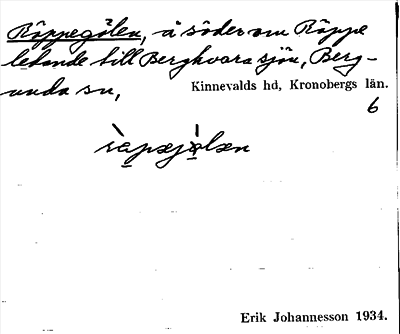 Räppegölen, å söder om Räppe
ledande till Bergkvara sjön, Berg-
unda sn, Kinnevalds hd, Kronobergs län.
6
Erik Johannesson 1934.